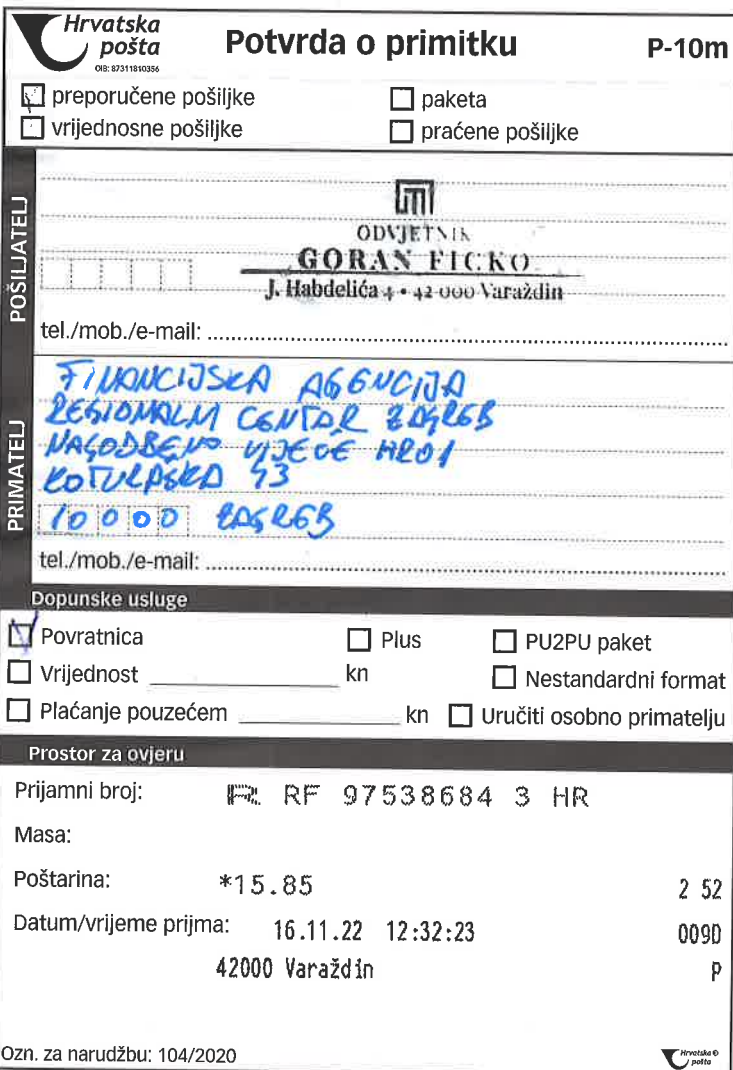 Hrvatska
pošta
OIB: 87311810356
Potvrda o primitku
P-10m
preporučene pošiljke
paketa
vrijednosne pošiljke
praćene pošiljke
POŠILJATELJ
ODVJETNIK
GORAN FICKO
J. Habdelića 4 • 42 000 Varaždin
tel./mob./e-mail:
PRIMATELJ
FINANCIJSKA AGENCIJA
REGIONALNI CENTAR ZAGREB
NAGODBENO VIJEĆE HR01
KOTURAŠKA 43
10000 ZAGREB
tel./mob./e-mail:
Dopunske usluge
Povratnica
Plus
PU2PU paket
Vrijednost kn
Nestandardni format
Plaćanje pouzećem kn
Uručiti osobno primatelju
Prostor za ovjeru
Prijamni broj: R RF 97538684 3 HR
Masa:
Poštarina: *15.85 2 52
Datum/vrijeme prijma: 16.11.22 12:32:23 009D
42000 Varaždin P
Ozn. za narudžbu: 104/2020
Hrvatska
pošta